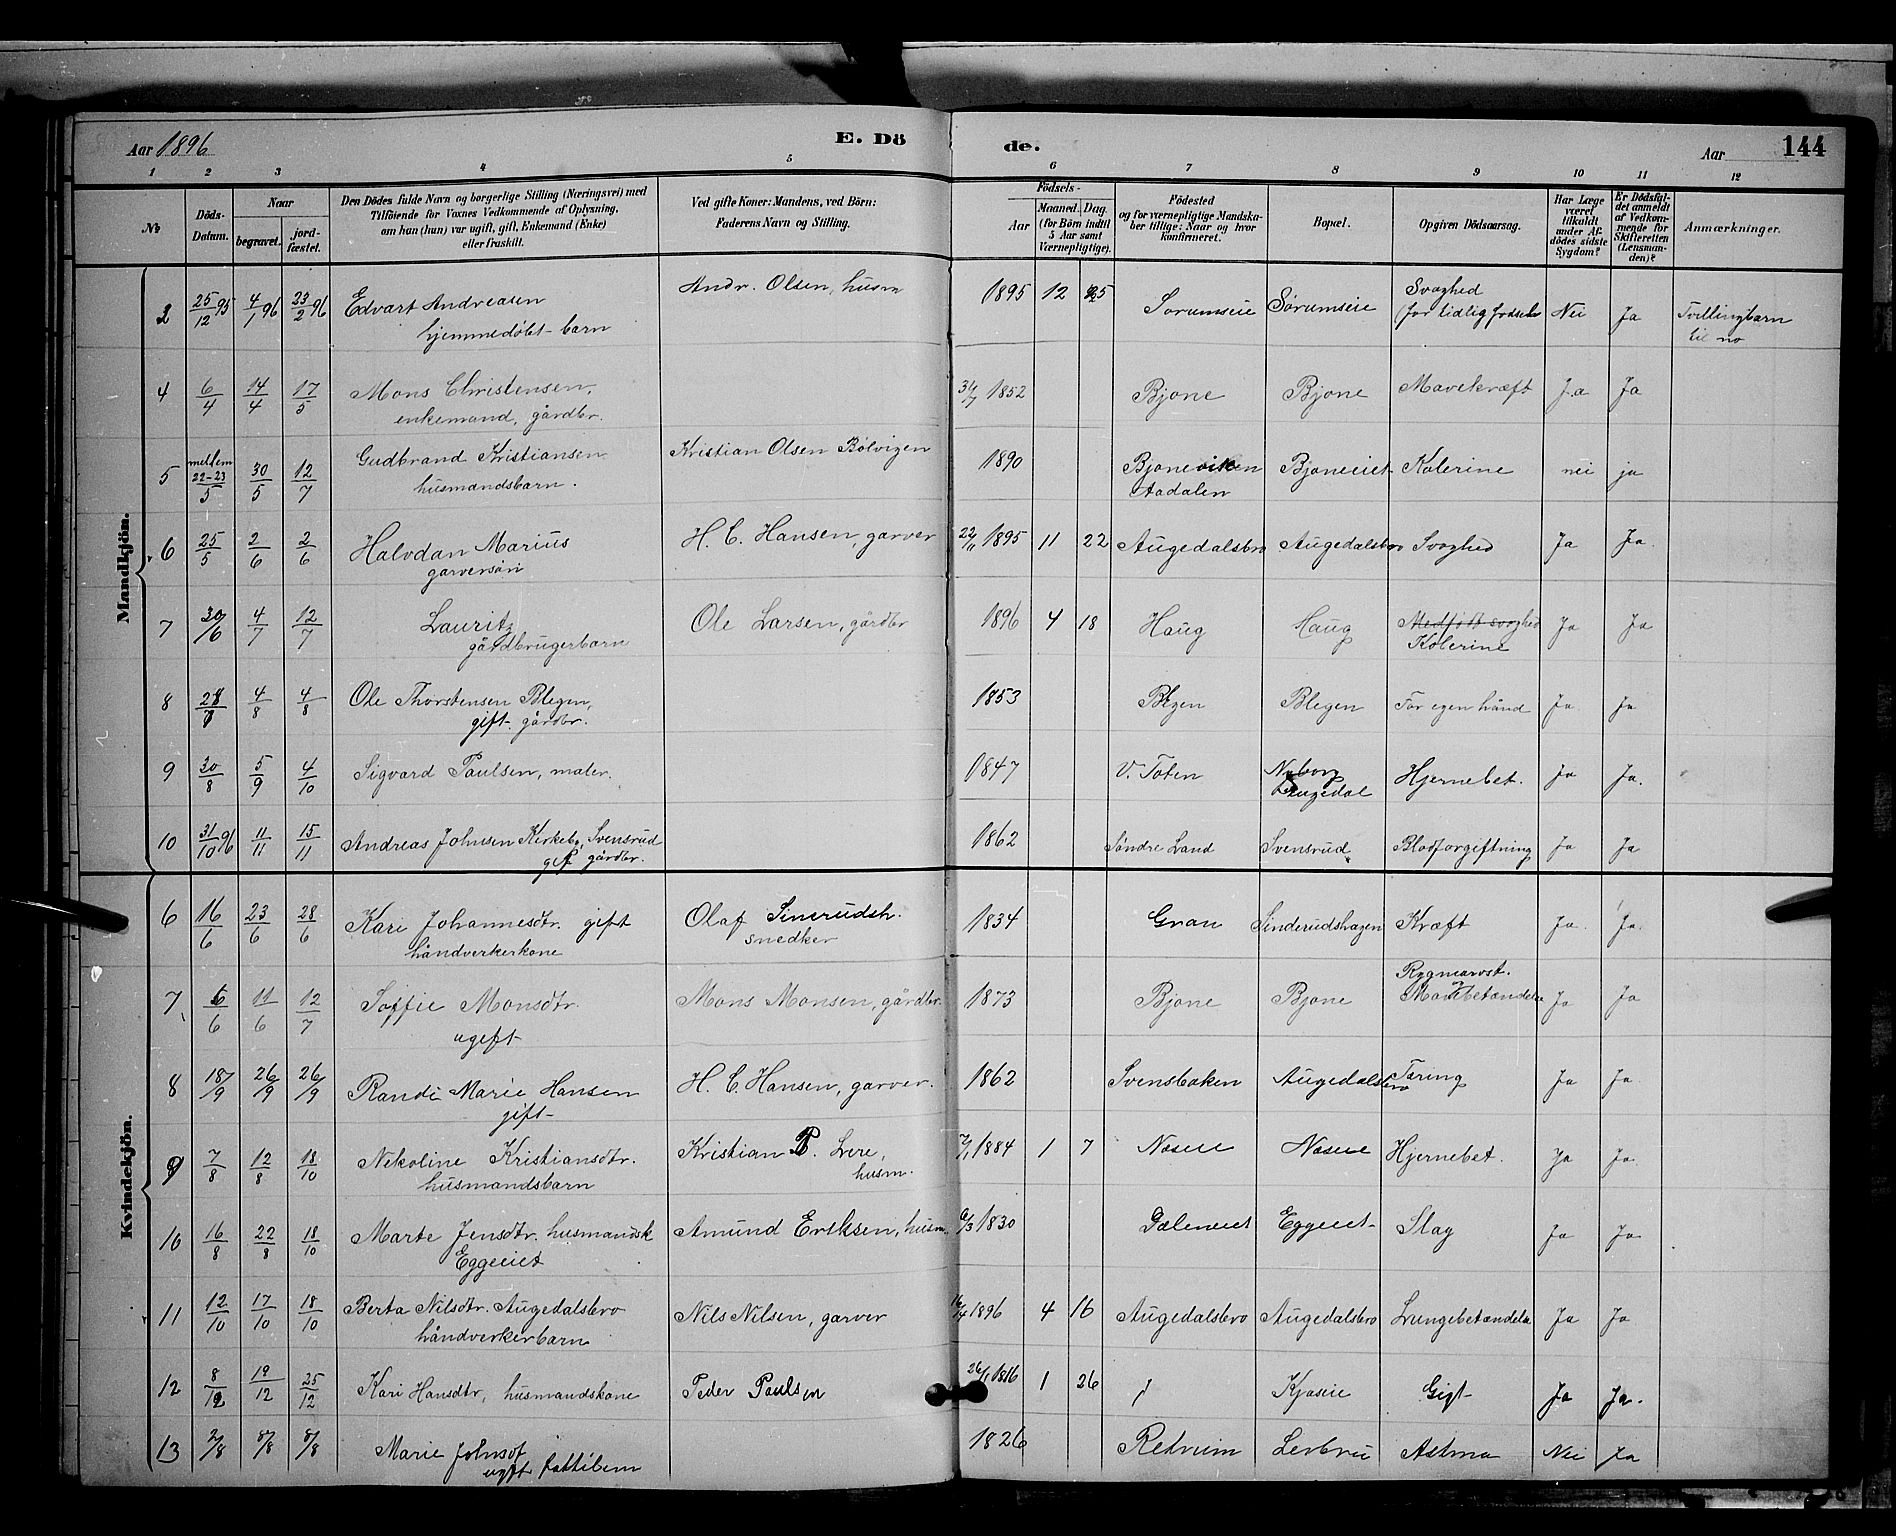 Aar 1896
E. Dö
de.
Aar
144
1 2 3 4 5 6 7 8 9 10 11 12
No
Döds-Datum.
Naar
begravet.
jord-fæstet.
Den Dödes fulde Navn og borgerlige Stilling (Næringsvei) med
Tilföiende for Voxnes Vedkommende af Oplysning,
om han (hun) var ugift, gift, Enkemand (Enke)
eller fraskilt.
Ved gifte Koner: Mandens, ved Börn:
Faderens Navn og Stilling.
Födsels-
Aar
Maaned. Dag
(for Börn indtil
5 Aar samt
Værnepligtige).
Födested
og for værnepligtige Mandska-
ber tillige: Naar og hvor
konfirmeret.
Bopæl.
Opgiven Dödsaarsag.
Har Læge
været
tilkaldt
under Af-
dödes sidste
Sygdom?
Er Dödsfal-
det anmeldt
af Vedkom-
mende for
Skifteretten
(Lensman-
den)?
Anmærkninger.
Mandkjön.
2 25/12 95 4/1 96 23/2 96 Edvart Andreasen Andr. Olsen, husm 1895 12 25 Sorumseie Sørumseie Svaghed Nei Ja Tvillingbarn
hjemmedøbt barn (for tidlig fødsel til no
4 6/4 14/4 17/5 Mons Christensen, 31/7 1852 Bjone Bjone Mavekræft Ja Ja
enkemand, gårdbr.
5 mellem 22-23/5 30/5 12/7 Gudbrand Kristiansen Kristian Olsen Bølvigen 1890 Bjoneviken Bjoneeiet Kolerine nei ja
husmandsbarn. Aadalen
6 25/5 2/6 2/6 Halvdan Marius H. C. Hansen, garver 22/11 1895 11 22 Augedalsbro Augedalsbro Svaghed Ja Ja
garversøn
7 30/6 4/7 12/7 Lauritz Ole Larsen, gårdbr 1896 4 18 Haug Haug Medfødt svaghed Ja Ja
gårdbrugerbarn Kolerine
8 28/7 4/8 4/8 Ole Thorstensen Blegen, 1853 Blegen Blegen For egen hånd Ja Ja
gift gårdbr.
9 30/8 5/9 4/10 Sigvard Paulsen, maler. 1847 V. Toten Nyborg Hjernebet. Ja Ja.
Augedal
10 31/10 96 11/11 15/11 Andreas Johnsen Kirkeby, Svensrud 1862 Søndre Land Svensrud Blodforgiftning Ja Ja
gift gårdbr.
Kvindekjön.
6 16/6 23/6 28/6 Kari Johannesdtr. gift Olaf Sinerudsh. 1834 Gran Sinderudshagen Kræft Ja. Ja.
håndverkerkone snedker
7 6/6 11/6 12/7 Soffie Monsdtr. Mons Monsen, gårdbr. 1873 Bjone Bjone Rygmarvst. Ja Ja
ugift og
8 18/9 26/9 26/9 Randi Marie Hansen H. C. Hansen, garver. 1862 Svensbaken Augedalsbro Tæring Ja Ja
gift
9 7/8 12/8 18/10 Nekoline Kristiansdtr. Kristian P. 1884 1 7 Hjernebet. Ja Ja.
husmandsbarn husm.
10 16/8 22/8 18/10 Marte Jensdtr. husmandsk Amund Eriksen, husm. 6/3 1830 Eggeeiet Slag Ja Ja
Eggeeiet
11 12/10 17/10 18/10 Berta Nilsdtr. Augedalsbro Nils Nilsen, garver 16/4 1896 4 16 Augedalsbro Augedalsbro Lungebetændelse Ja Ja
håndverkerbarn
12 8/12 19/12 25/12 Kari Hansdtr, husmandskone Peder Paulsen 26/1 1816 1 26 Kjøseie Gigt Ja Ja.
13 2/8 8/8 8/8 Marie Johnsdt 1826 Retrum Lerbru Astma Nei Ja
ugift fattiglem